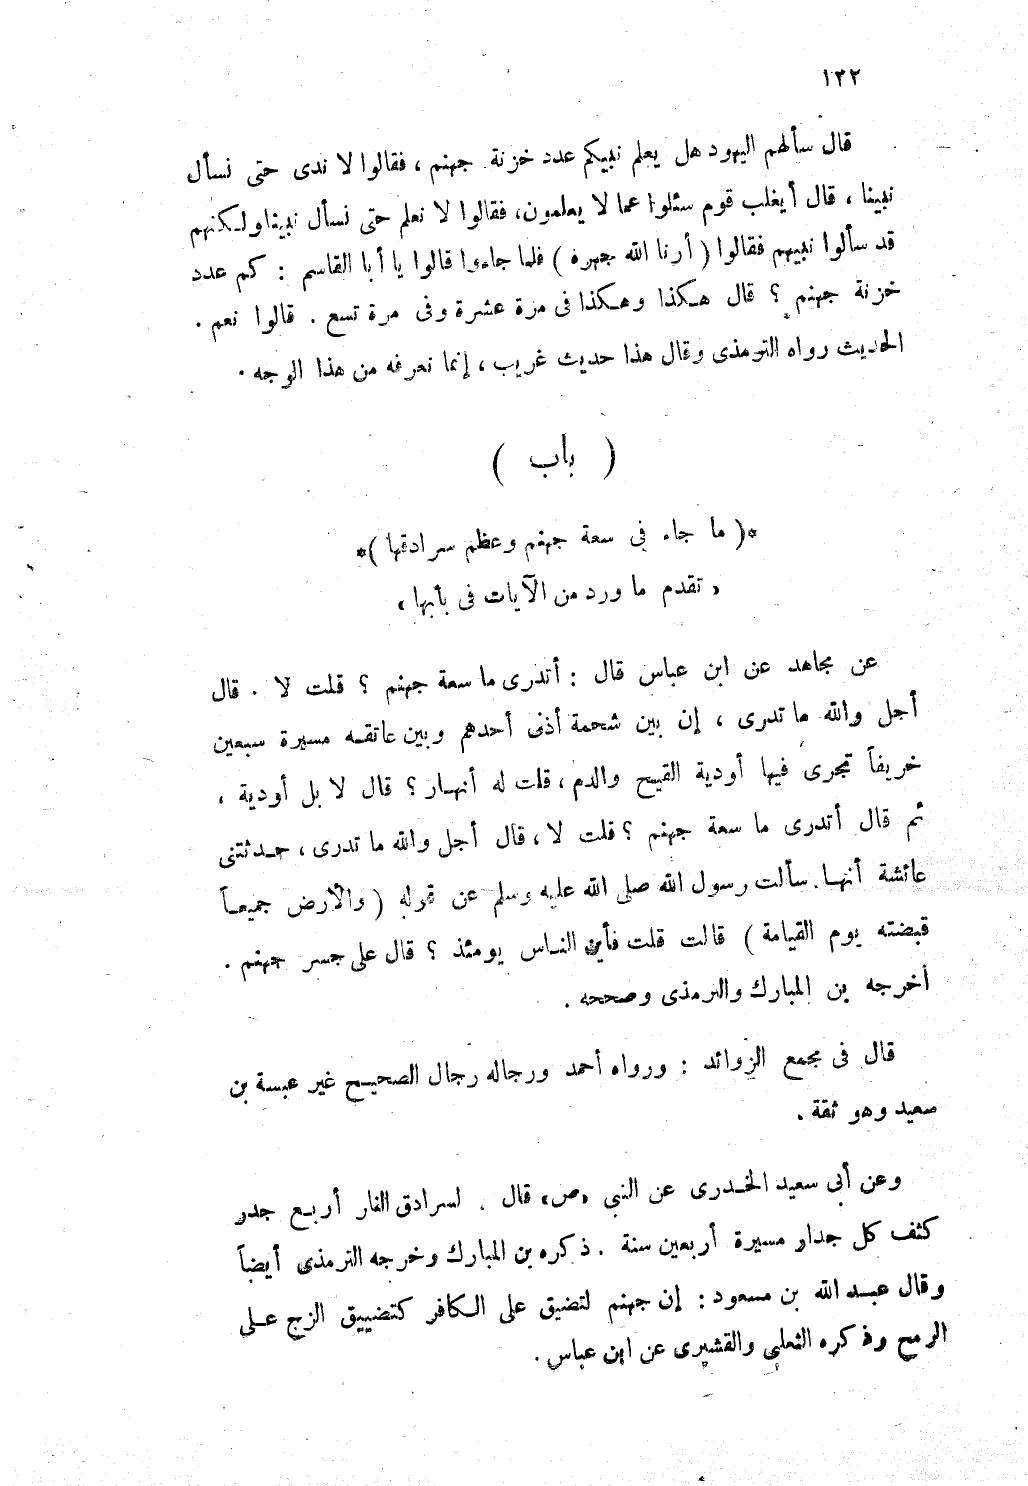 ١٣٢
قال سألهم اليهود هل يعلم نبيكم عدد خزنة جهنم ، فقالوا لا ندى حتى نسأل
نبينا ، قال أيغلب قوم سئلوا عما لا يعلمون، فقالوا لا نعلم حتى نسأل نبينا ولكنهم
قد سألوا نبيهم فقالوا ( أرنا الله جهرة ) فلما جاءوا قالوا يا أبا القاسم : كم عدد
خزنة جهنم ؟ قال هكذا وهكذا فى مرة عشرة وفى مرة تسع . قالوا نعم .
الحديث رواه الترمذى وقال هذا حديث غريب ، إنما نعرفه من هذا الوجه .
( باب )
*( ما جاء فى سعة جهنم وعظم سرادقها )*
« تقدم ما ورد من الآيات فى بابها »
عن مجاهد عن ابن عباس قال : أتدرى ما سعة جهنم ؟ قلت لا . قال
أجل والله ما تدرى ، إن بين شحمة أذنى أحدهم وبين عاتقه مسيرة سبعين
خريفاً تجرى فيها أودية القيح والدم ، قلت له أنهار ؟ قال لا بل أودية ،
ثم قال أتدرى ما سعة جهنم ؟ قلت لا ، قال أجل والله ما تدرى ، حدثتنى
عائشة أنها سألت رسول الله صلى الله عليه وسلم عن قوله ( والأرض جميعاً
قبضته يوم القيامة ) قالت قلت فأين الناس يومئذ ؟ قال على جسر جهنم .
أخرجه بن المبارك والترمذى وصححه .
قال فى مجمع الزوائد : ورواه أحمد ورجاله رجال الصحيح غير عبسة بن
سعيد وهو ثقة .
وعن أبى سعيد الخدرى عن النبى «ص» قال . لسرادق النار أربع جدر
كثف كل جدار مسيرة أربعين سنة . ذكره بن المبارك وخرجه الترمذى أيضاً
وقال عبد الله بن مسعود : إن جهنم لتضيق على الكافر كتضييق الزج على
الرمح وذكره الثعلبى والقشيرى عن ابن عباس .